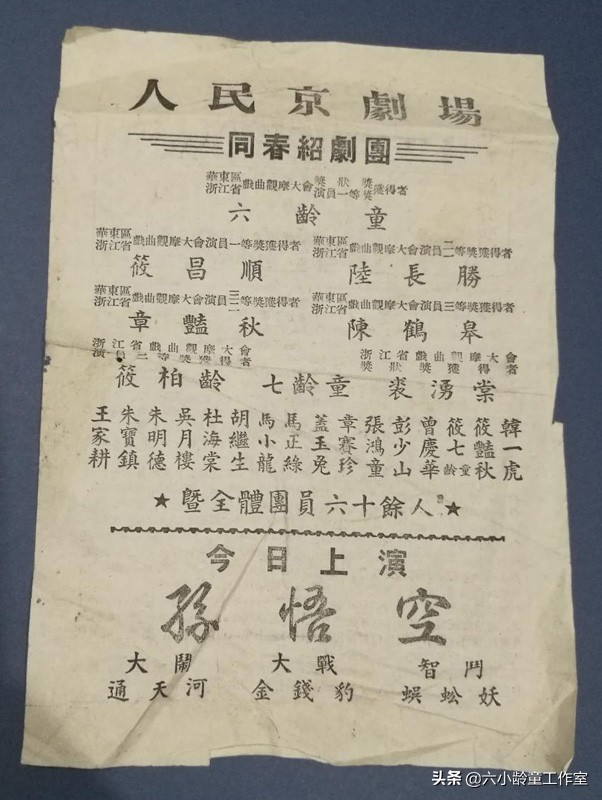 人民京劇場
同春紹劇團
華東區浙江省戲曲觀摩大會獎狀演員一等獎獲得者
六齡童
華東區浙江省戲曲觀摩大會演員一等獎獲得者
筱昌順
華東區浙江省戲曲觀摩大會演員二等獎獲得者
陸長勝
華東區浙江省戲曲觀摩大會演員三二等獎獲得者
章豔秋
華東區浙江省戲曲觀摩大會演員三等獎獲得者
陳鶴皋
浙江省戲曲觀摩大會演員二等獎獲得者
筱柏齡
七齡童
浙江省戲曲觀摩大會獎狀獎獲得者
裘湧棠
韓一虎
筱豔秋
筱七齡童
曾慶華
彭少山
張鴻童
章賽珍
蓋玉兔
馬正綠
馬小龍
胡繼生
杜海棠
吳月樓
朱明德
朱寶鎮
王家耕
★暨全體團員六十餘人★
今日上演
孫悟空
大鬧通天河
大戰金錢豹
智鬥蜈蚣妖
头条 @六小龄童工作室